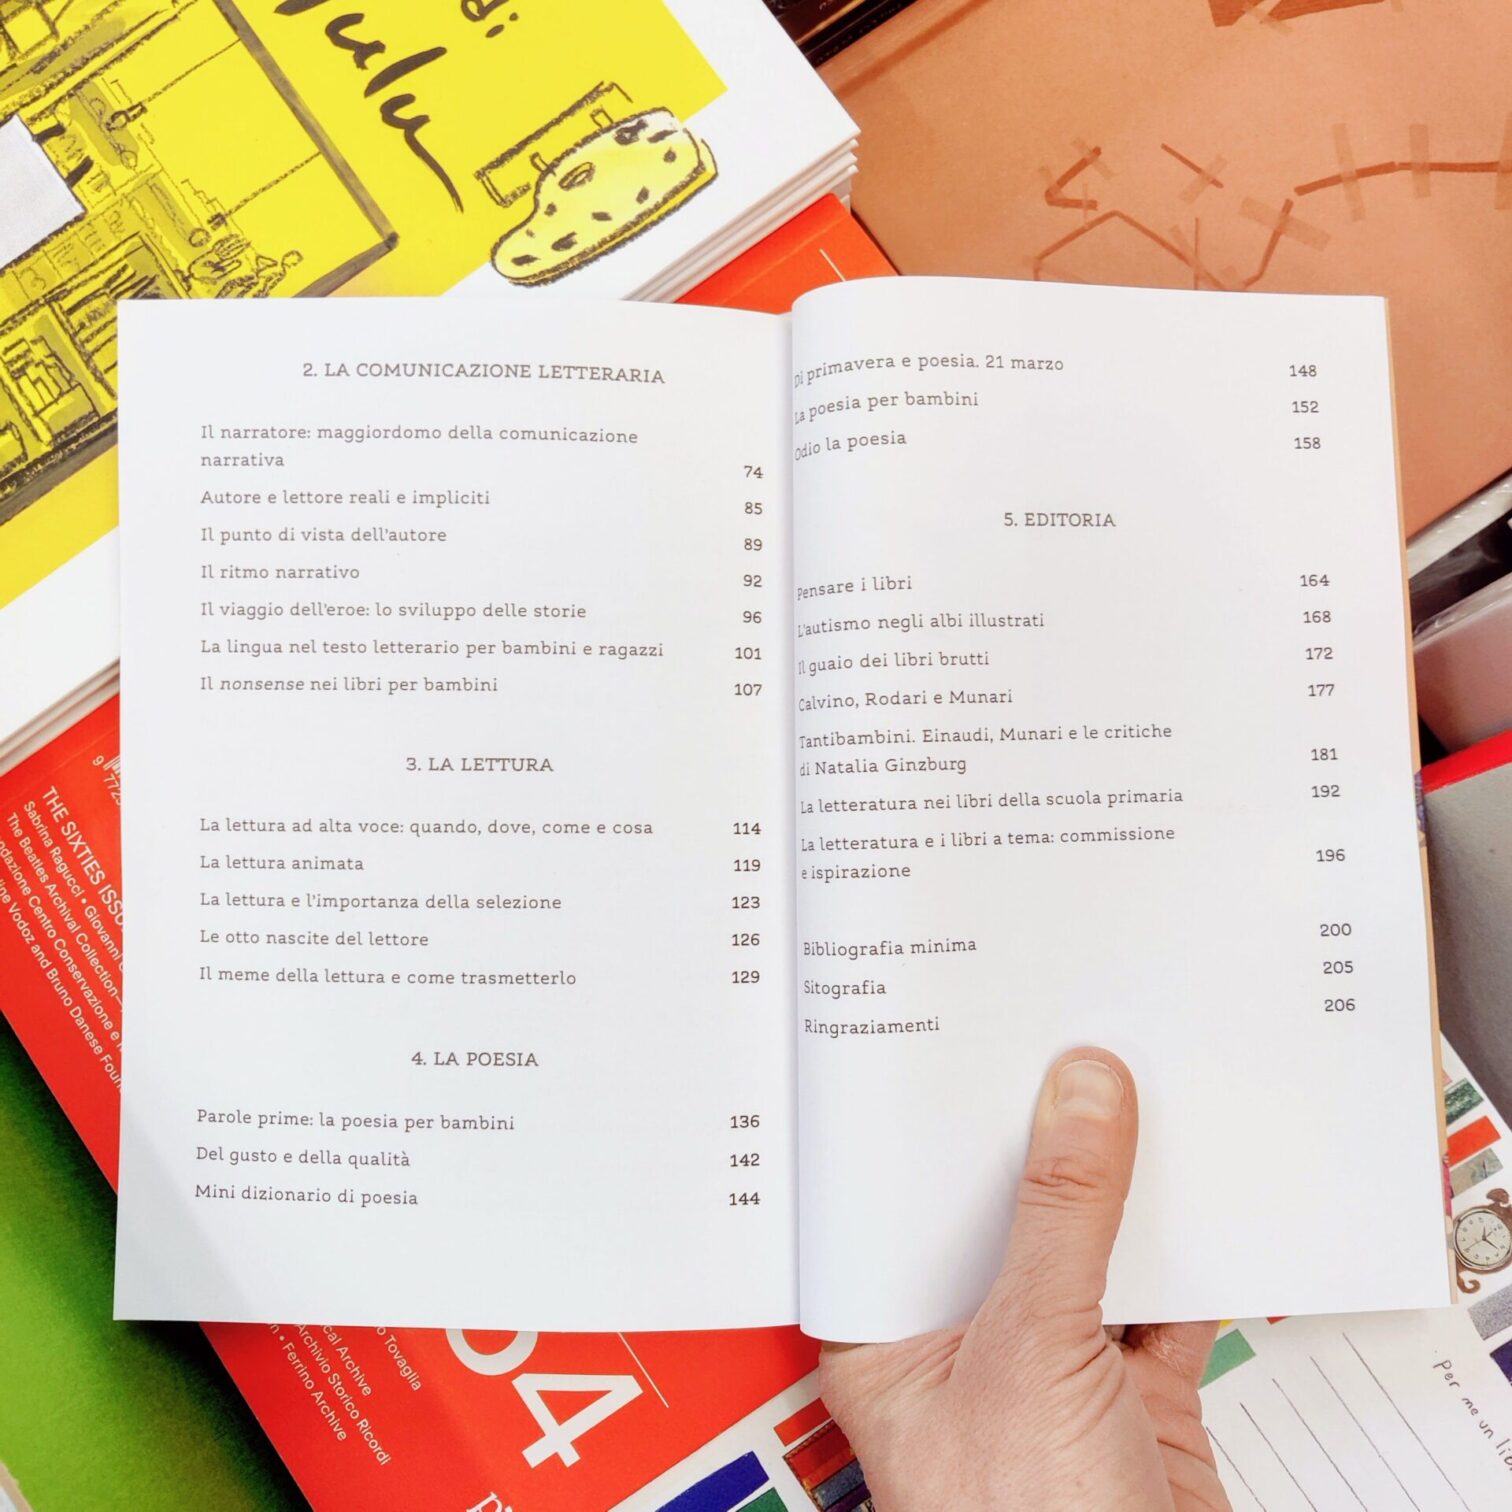 di:
2. LA COMUNICAZIONE LETTERARIA
Il narratore: maggiordomo della comunicazione
narrativa 74
Autore e lettore reali e impliciti 85
Il punto di vista dell'autore 89
Il ritmo narrativo 92
Il viaggio dell'eroe: lo sviluppo delle storie 96
La lingua nel testo letterario per bambini e ragazzi 101
Il nonsense nei libri per bambini 107
3. LA LETTURA
La lettura ad alta voce: quando, dove, come e cosa 114
La lettura animata 119
La lettura e l'importanza della selezione 123
Le otto nascite del lettore 126
Il meme della lettura e come trasmetterlo 129
4. LA POESIA
Parole prime: la poesia per bambini 136
Del gusto e della qualità 142
Mini dizionario di poesia 144
Di primavera e poesia. 21 marzo 148
La poesia per bambini 152
Odio la poesia 158
5. EDITORIA
Pensare i libri 164
L'autismo negli albi illustrati 168
Il guaio dei libri brutti 172
Calvino, Rodari e Munari 177
Tantibambini. Einaudi, Munari e le critiche
di Natalia Ginzburg 181
La letteratura nei libri della scuola primaria 192
La letteratura e i libri a tema: commissione
e ispirazione 196
Bibliografia minima 200
Sitografia 205
Ringraziamenti 206
THE SIXTIES ISSU
Sabrina Ragucci • Giovanni
The Beatles Archival Collection—
Centro Conservazione e
Vodoz and Bruno Danese Foun
Tovaglia
Archivio Storico Ricordi
• Ferrino Archive
64
Per me un lib